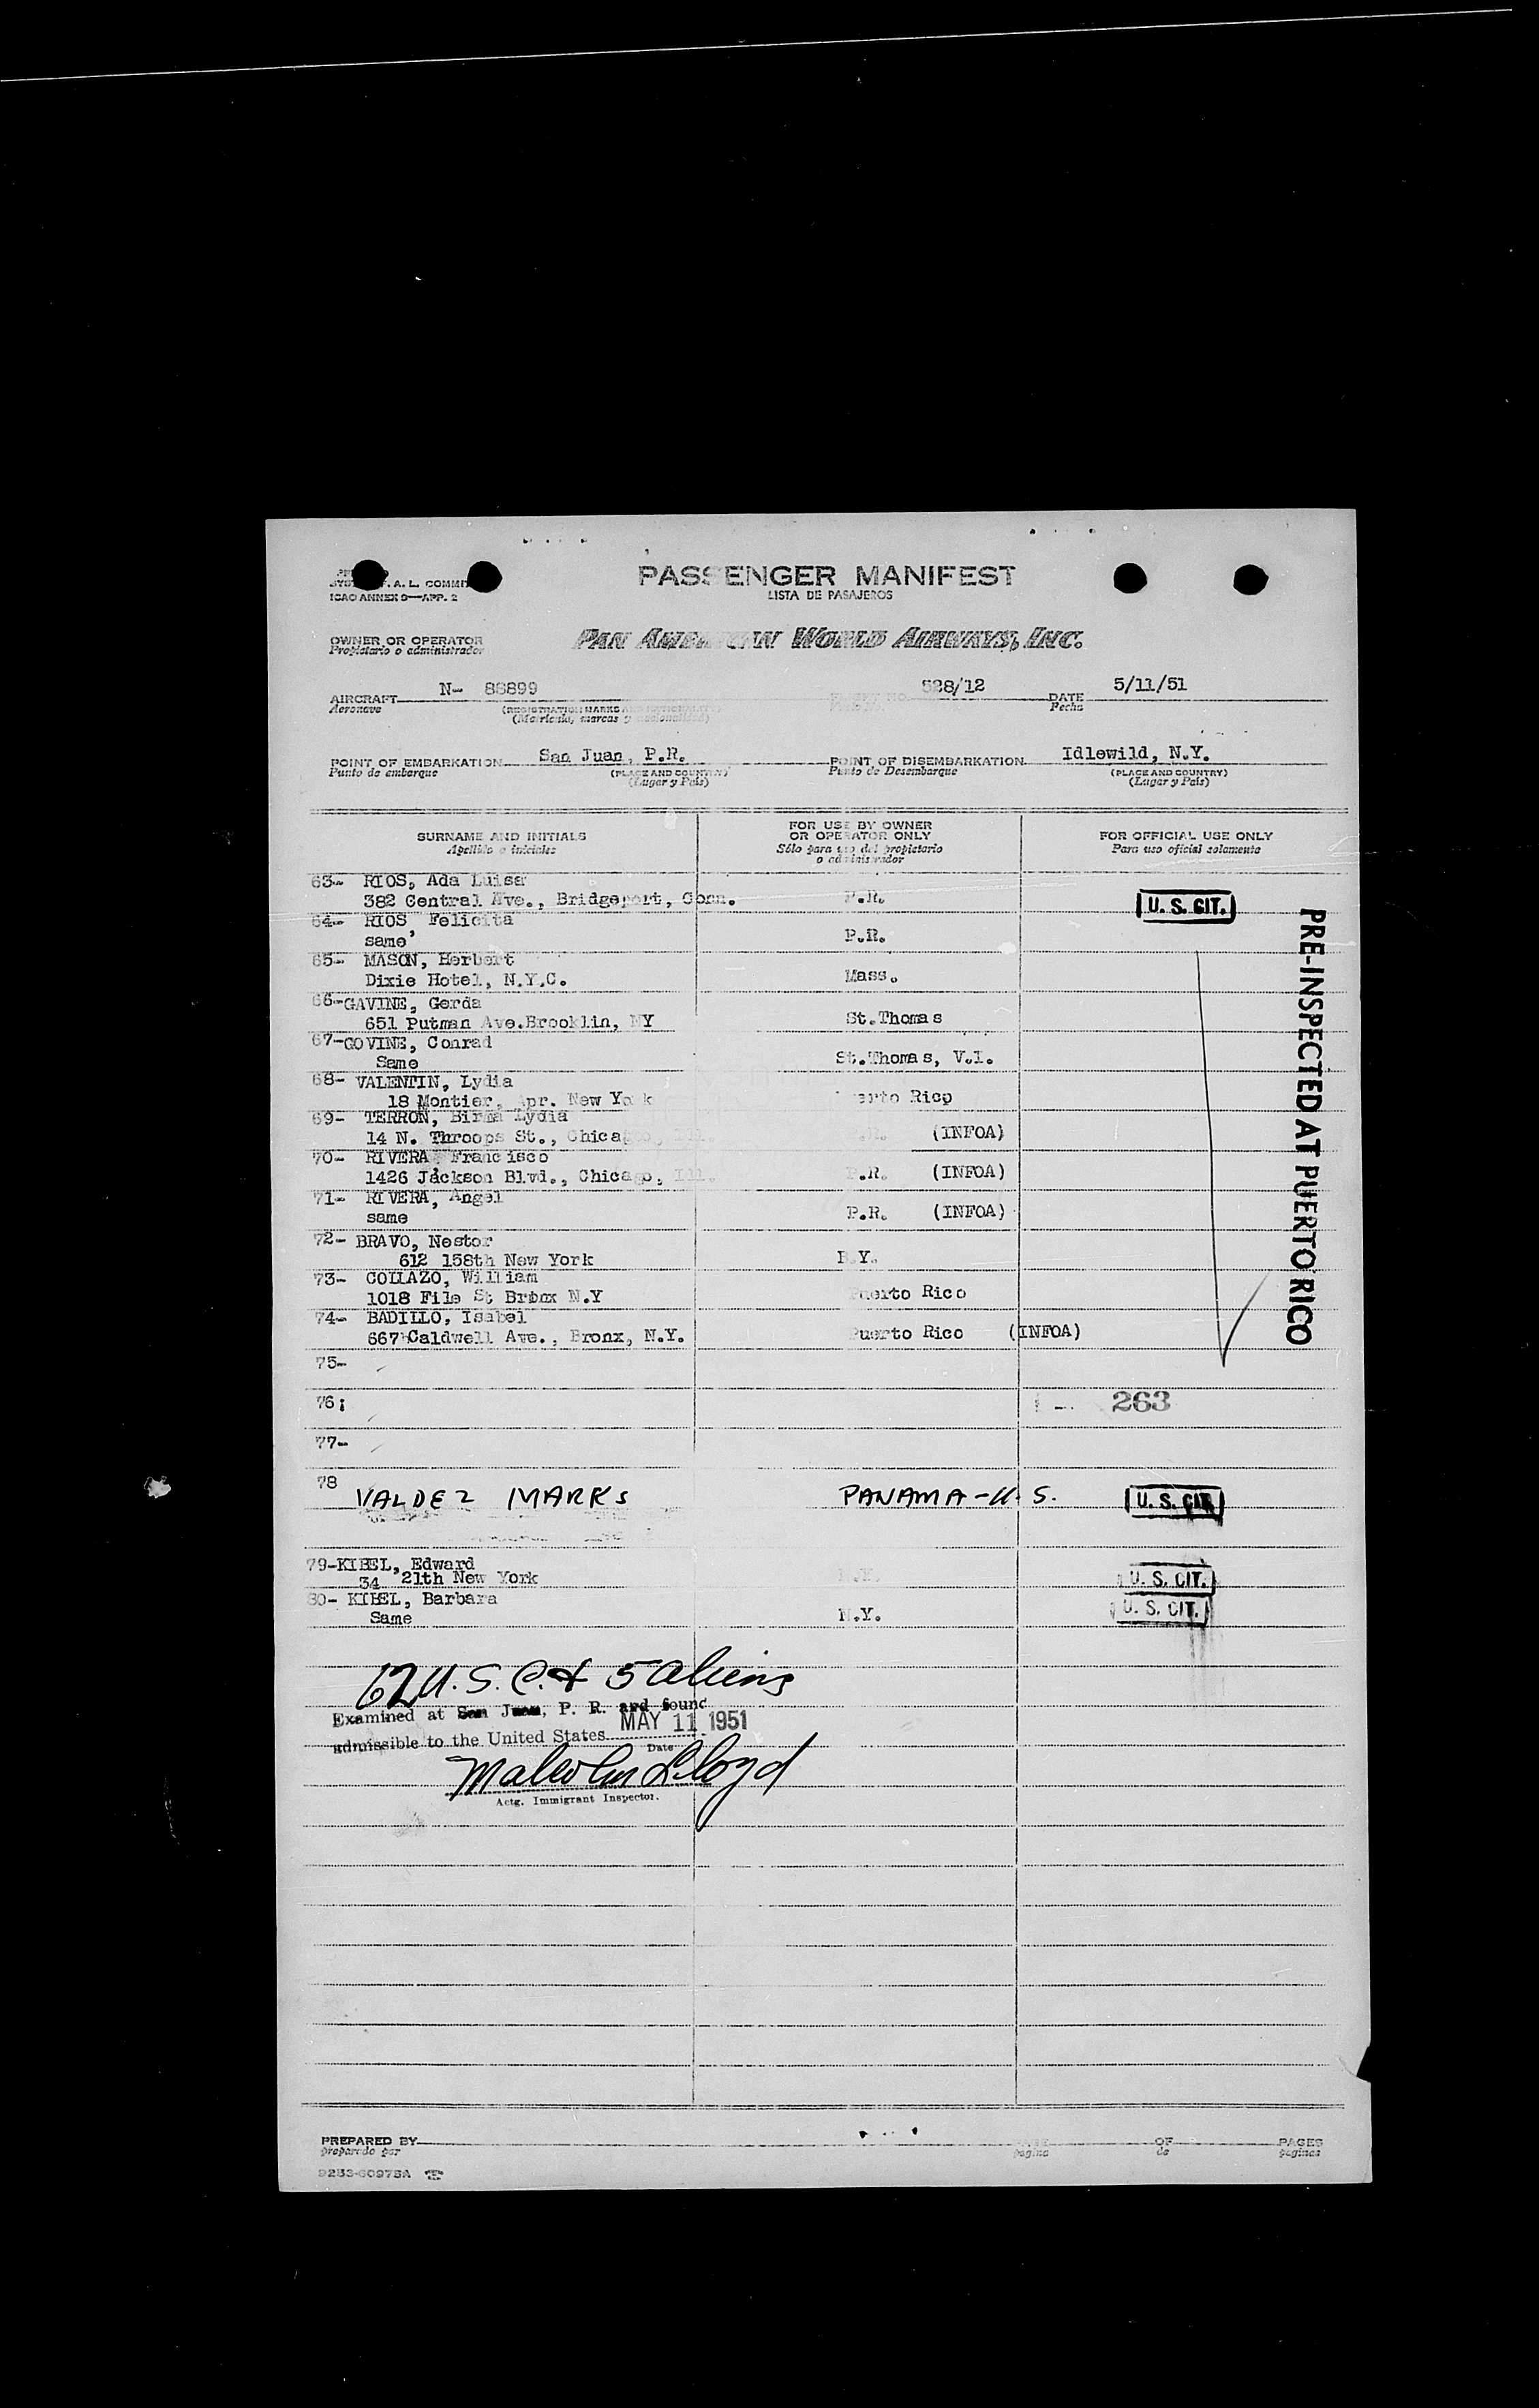 A. L. COMMI
ICAO ANNEX 9—APP. 2
PASSENGER MANIFEST
LISTA DE PASAJEROS
OWNER OR OPERATOR
Propietario o administrador
PAN AMERICAN WORLD AIRWAYS, INC.
AIRCRAFT N- 88899 528/12 DATE 5/11/51
Aeronave Fecha
(Matrícula, marcas y nacionalidad)
POINT OF EMBARKATION San Juan, P.R. POINT OF DISEMBARKATION Idlewild, N.Y.
Punto de embarque (PLACE AND COUNTRY) Punto de Desembarque (PLACE AND COUNTRY)
(Lugar y País) (Lugar y País)
SURNAME AND INITIALS
Apellido e iniciales
FOR USE BY OWNER
OR OPERATOR ONLY
Sólo para uso del propietario
o administrador
FOR OFFICIAL USE ONLY
Para uso oficial solamente
63- RIOS, Ada Luisa
382 Central Ave., Bridgeport, Conn. P.R. U. S. CIT.
64- RIOS, Felicita
same P.R.
65- MASON, Herbert
Dixie Hotel, N.Y.C. Mass.
66-GAVINE, Gerda
651 Putman Ave.Brooklin, NY St.Thomas
67-GOVINE, Conrad
Same St.Thomas, V.I.
68- VALENTIN, Lydia
18 Montier, Apr. New York Puerto Rico
69- TERRON, Birma Lydia
14 N. Throops St., Chicago, Ill. P.R. (INFOA)
70- RIVERA, Francisco
1426 Jackson Blvd., Chicago, Ill. P.R. (INFOA)
71- RIVERA, Angel
same P.R. (INFOA)
72- BRAVO, Nestor
612 158th New York
73- COLLAZO, William
1018 File St Bronx N.Y Puerto Rico
74- BADILLO, Isabel
667 Caldwell Ave., Bronx, N.Y. Puerto Rico (INFOA)
PRE-INSPECTED AT PUERTO RICO
75-
76; 263
77-
78 VALDEZ MARKS PANAMA-U.S. U. S. CIT.
79-KIBEL, Edward
34 21th New York N.Y. U. S. CIT.
80- KIBEL, Barbara
Same N.Y. U. S. CIT.
62 U.S.C. & 5 aliens
Examined at San Juan, P. R. and found
admissible to the United States MAY 11 1951
Date
Malcolm Lloyd
Actg. Immigrant Inspector.
PREPARED BY PAGE OF PAGES
preparado por pagina de paginas
9253-60975A